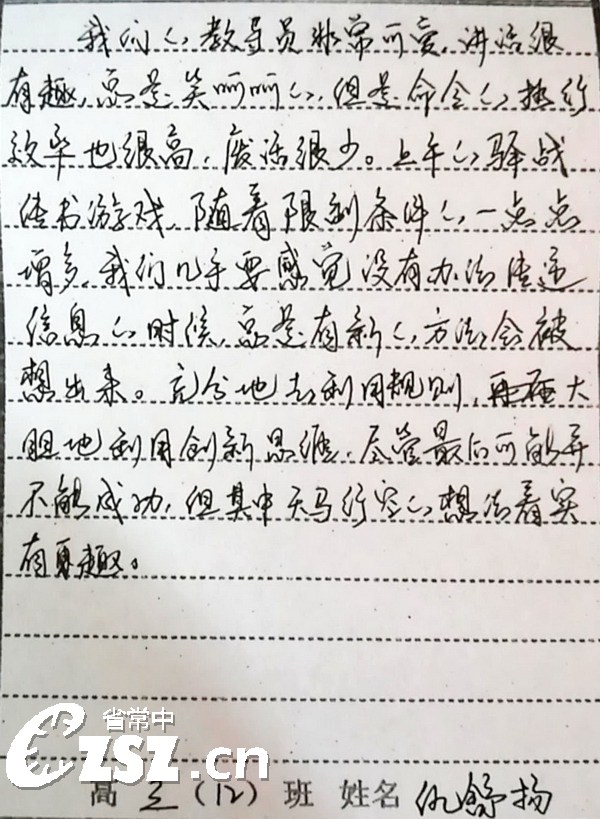 我们的教导员非常可爱,讲话很
有趣,总是笑呵呵的,但是命令的执行
效率也很高,废话很少。上午的驿战
传书游戏,随着限制条件的一点点
增多,我们几乎要感觉没有办法传递
信息的时候,总是有新的方法会被
想出来。充分地去利用规则,再大
胆地利用创新思维,尽管最后可能并
不能成功,但其中天马行空的想法着实
有趣。
省常中
CZSZ.cn
高三(12)班 姓名 仇舒扬